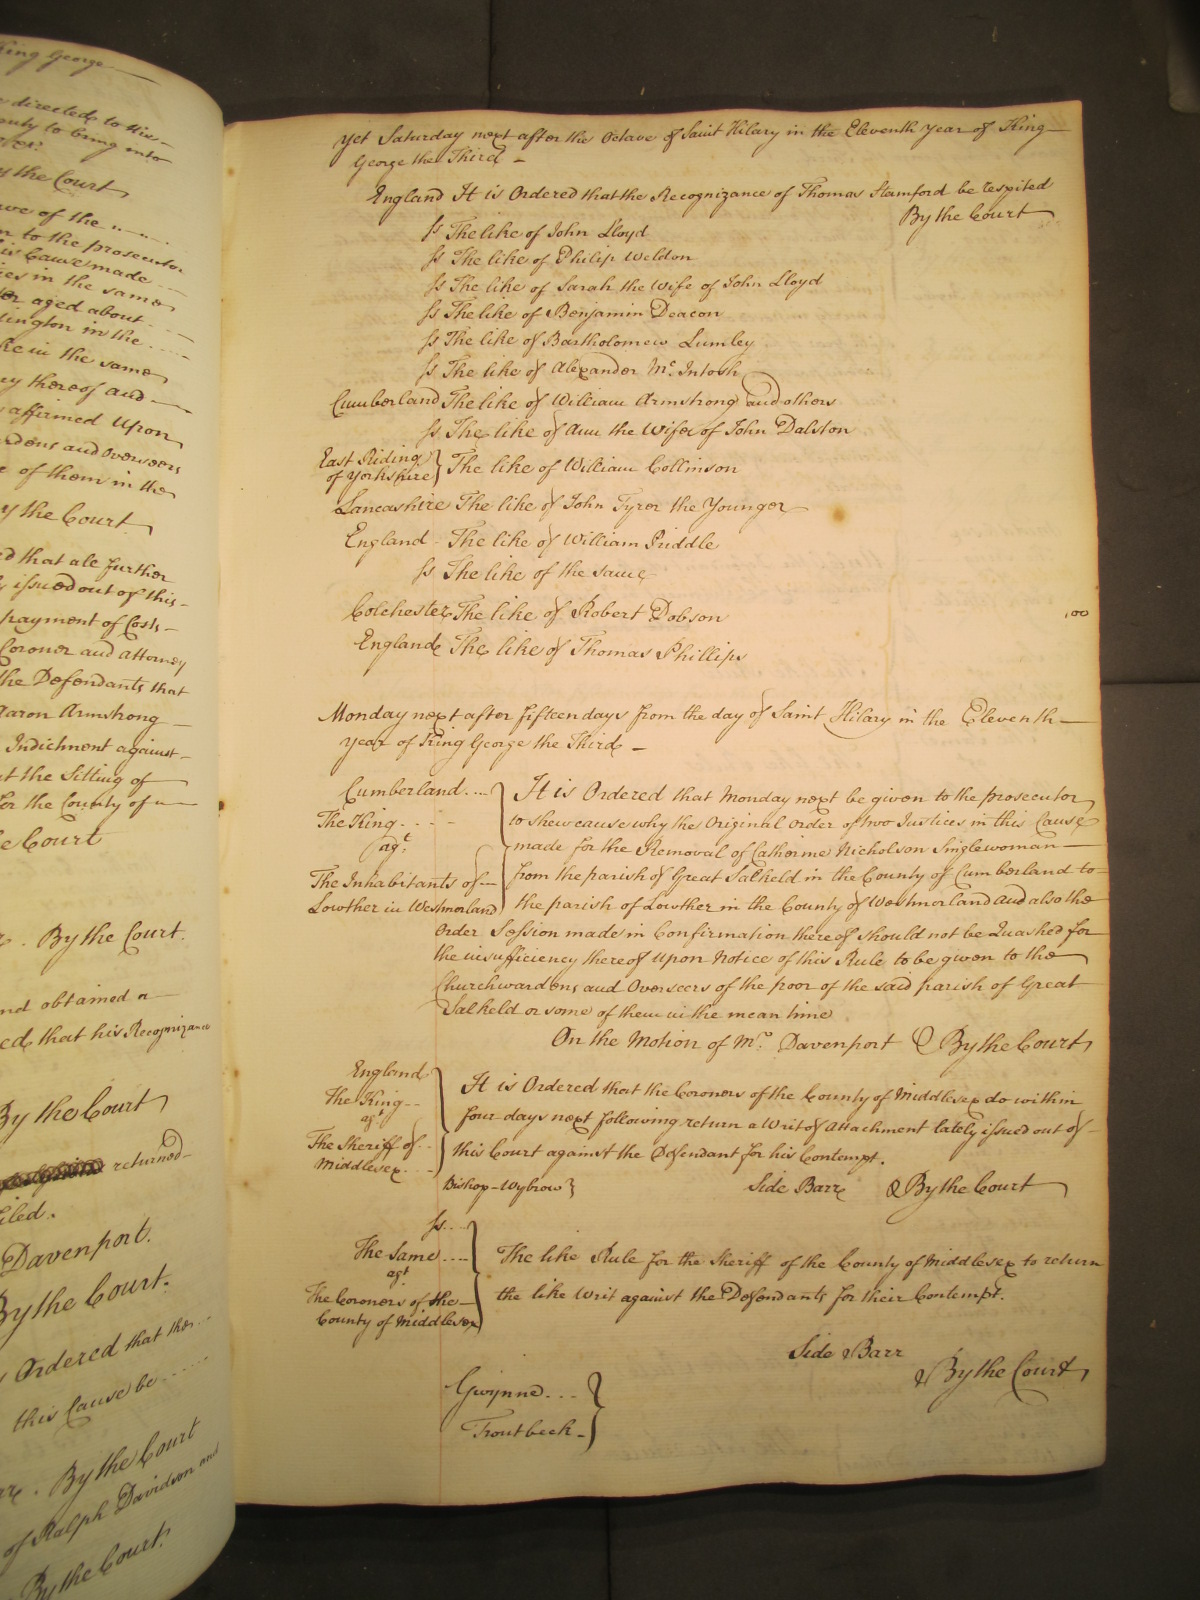 King George
directed to His
duty to bring into
By the Court
ave of the
n to the prosecutor
his Cause made
ies in the same
er aged about
lington in the
like in the same
ny thereof and
affirmed Upon
rdens and Overseers
e of them in the
By the Court
ed that all further
issued out of this
payment of Costs
Coroner and attorney
the Defendants that
Aaron Armstrong
Indictment against
at the Sitting of
for the County of
e Court
By the Court.
nd obtained a
ed that his Recognizance
By the Court
returned
filed.
Davenport.
By the Court.
Ordered that the
this Cause be
By the Court
of Ralph Davidson and
By the Court.
Yet Saturday next after the Octave of Saint Hilary in the Eleventh year of King
George the Third
England It is Ordered that the Recognizance of Thomas Stamford be respited
By the Court
Ss The like of John Lloyd
Ss The like of Philip Weldon
Ss The like of Sarah the Wife of John Lloyd
Ss The like of Benjamin Deacon
Ss The like of Bartholomew Lumley
Ss The like of Alexander Mc. Intosh
Cumberland The like of William Armstrong and others
Ss The like of Ann the Wife of John Dalston
East Riding
of Yorkshire } The like of William Collinson
Lancashire The like of John Tyrer the Younger
England - The like of William Priddle
Ss The like of the same
Colchester The like of Robert Dobson
England The like of Thomas Phillips
Monday next after fifteen days from the day of Saint Hilary in the Eleventh
year of King George the Third
Cumberland.... It is Ordered that Monday next be given to the prosecutor
The King.... to shew cause why the Original Order of two Justices in this Cause
agt. made for the Removal of Catherine Nicholson Singlewoman
The Inhabitants of from the parish of Great Salkeld in the County of Cumberland to
Lowther in Westmorland the parish of Lowther in the County of Westmorland and also the
Order Session made in Confirmation thereof should not be Quashed for
the insufficiency thereof upon Notice of this Rule to be given to the
Churchwardens and Overseers of the poor of the said parish of Great
Salkeld or some of them in the mean time
On the Motion of Mr. Davenport & By the Court
England It is Ordered that the Coroners of the County of Middlesex do within
The King four days next following return a Writ of Attachment lately issued out of
agt
The Sheriff of this Court against the Defendant for his Contempt.
Middlesex....
Bishop - Wybrow } Side Barr & By the Court
Ss...
The Same.... The like Rule for the Sheriff of the County of Middlesex to return
agt
The Coroners of the the like Writ against the Defendants for their Contempt.
County of Middlesex
Side Barr
& By the Court
Gwynne...
Troutbeck